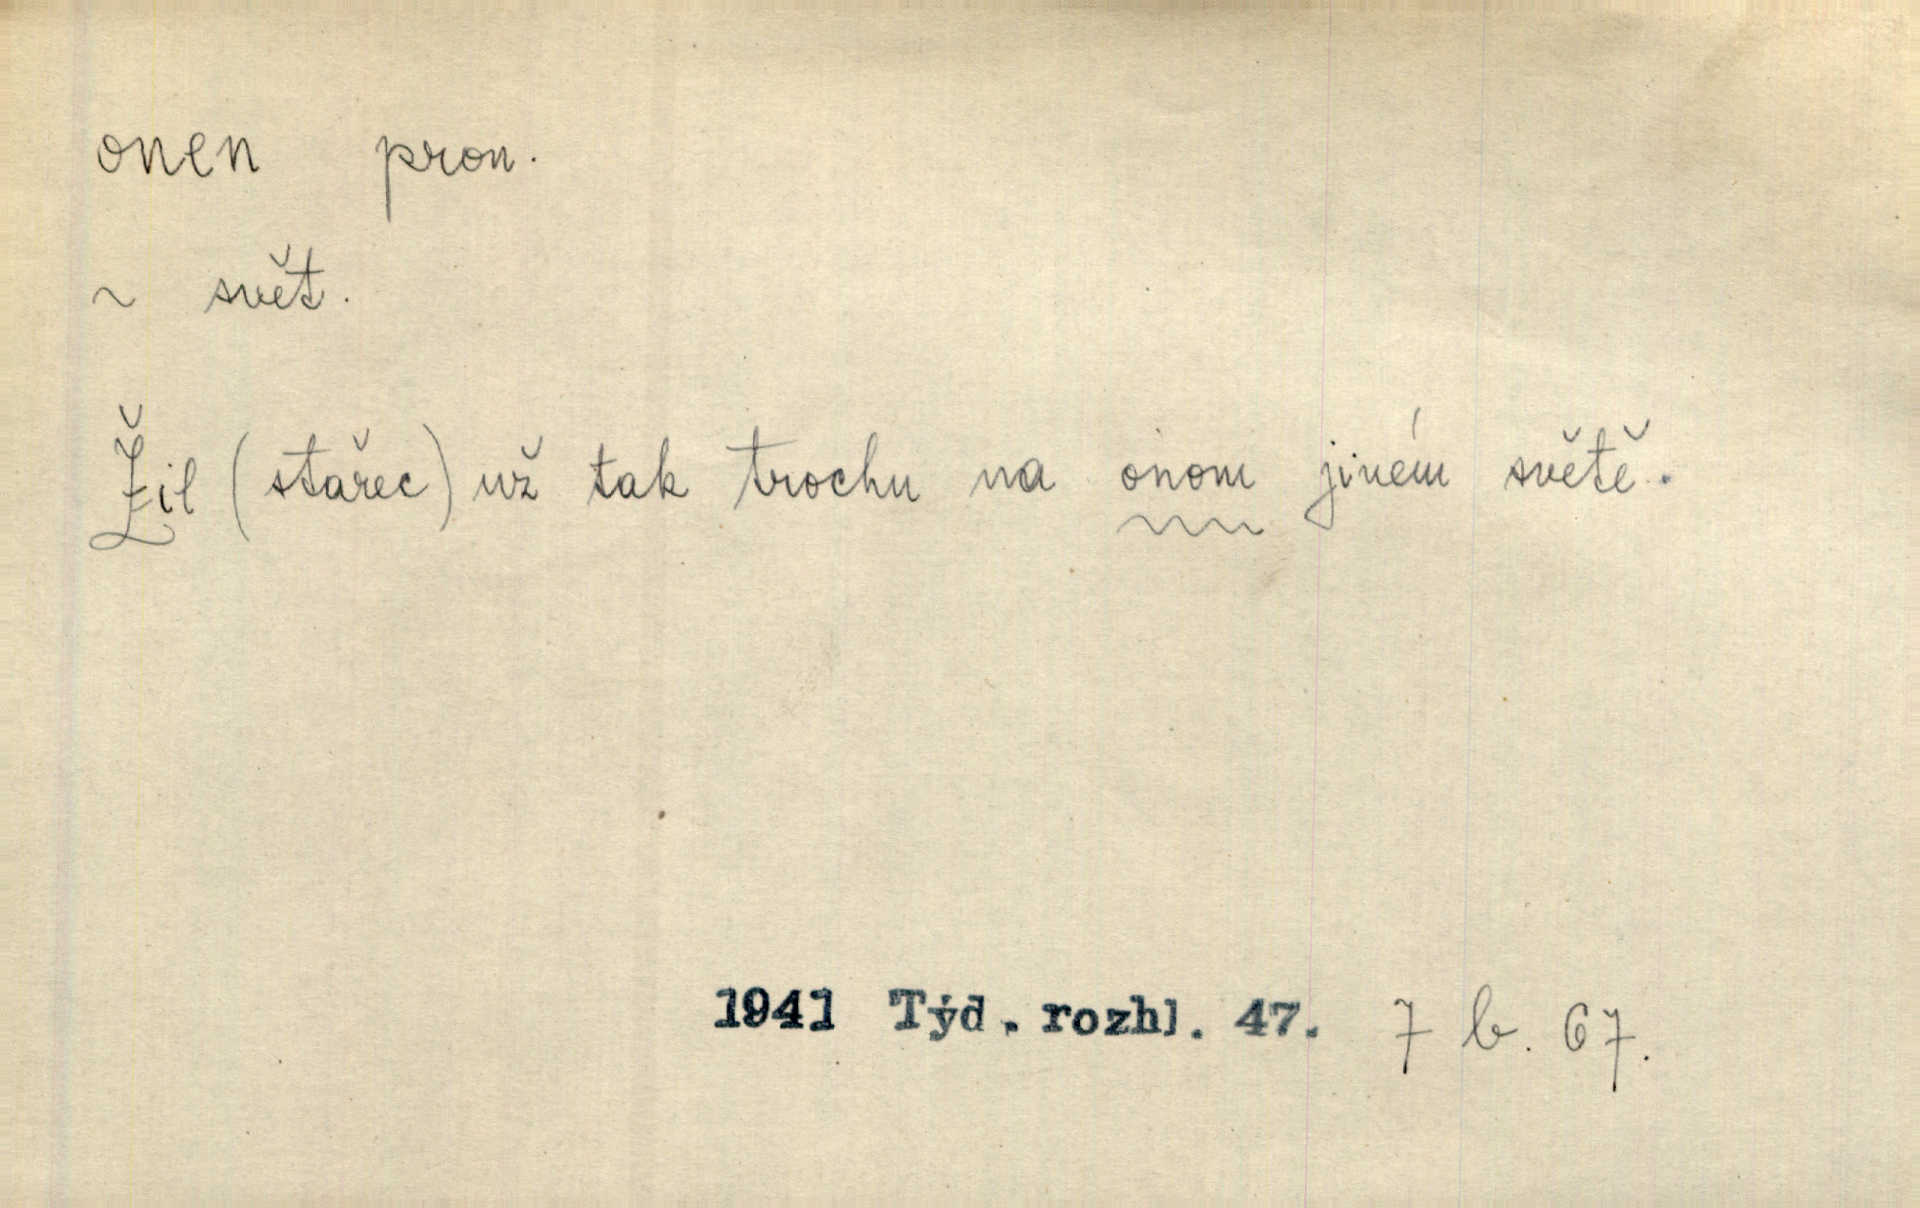 onen pron.
~ svět.
Žil (stařec) už tak trochu na onom jiném světě.
1941 Týd. rozhl. 47. 7 b. 67.